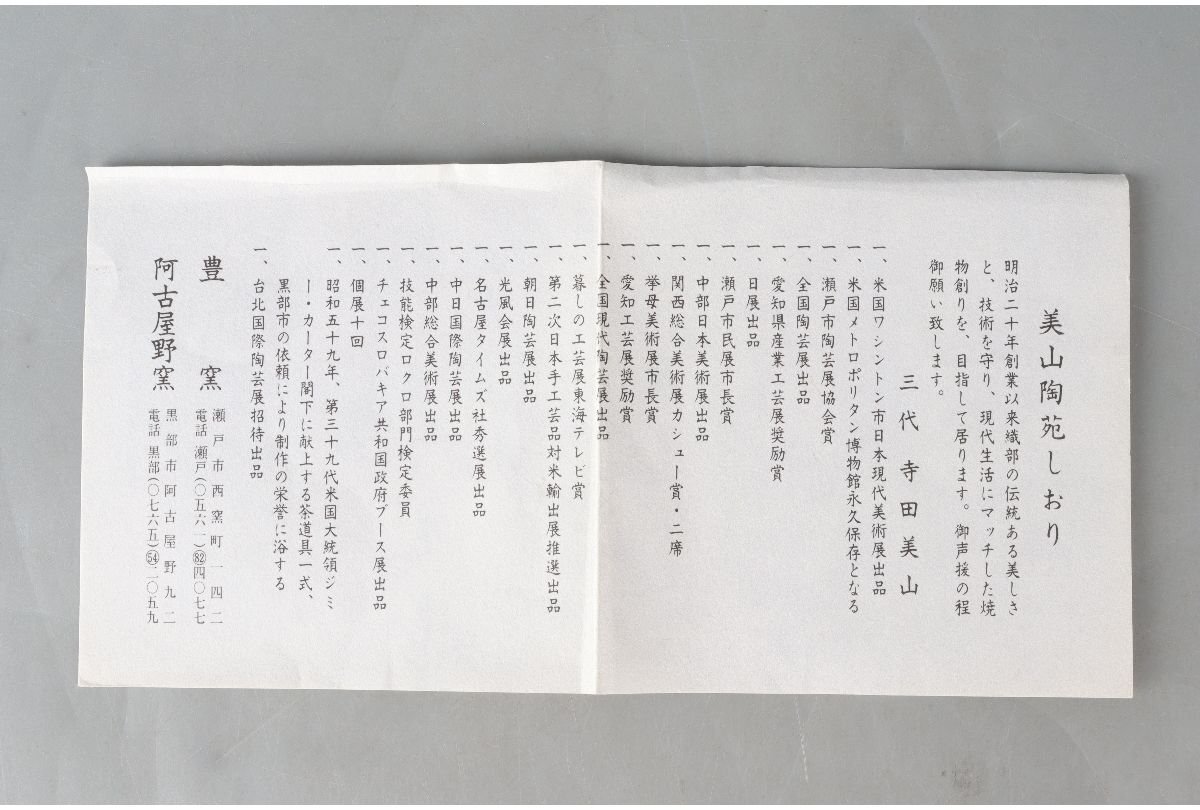 美山陶苑しおり
明治二十年創業以来織部の伝統ある美しさ
と、技術を守り、現代生活にマッチした焼
物創りを、目指して居ります。御声援の程
御願い致します。
三代 寺田美山
一、米国ワシントン市日本現代美術展出品
一、米国メトロポリタン博物館永久保存となる
一、瀬戸市陶芸展協会賞
一、全国陶芸展出品
一、愛知県産業工芸展奨励賞
一、日展出品
一、瀬戸市民展市長賞
一、中部日本美術展出品
一、関西総合美術展カシュー賞・二席
一、挙母美術展市長賞
一、愛知工芸展奨励賞
一、全国現代陶芸展出品
一、暮しの工芸展東海テレビ賞
一、第二次日本手工芸品対米輸出展推選出品
一、朝日陶芸展出品
一、光風会展出品
一、名古屋タイムズ社秀選展出品
一、中日国際陶芸展出品
一、中部総合美術展出品
一、技能検定ロクロ部門検定委員
一、チェコスロバキア共和国政府ブース展出品
一、個展十回
一、昭和五十九年、第三十九代米国大統領ジミ
ー・カーター閣下に献上する茶道具一式、
黒部市の依頼により制作の栄誉に浴する
一、台北国際陶芸展招待出品
豊窯 瀬戸市西窯町一四二
電話 瀬戸(〇五六一)㉒四〇七七
阿古屋野窯 黒部市阿古屋野九二
電話 黒部(〇七六五)㊴二〇五九